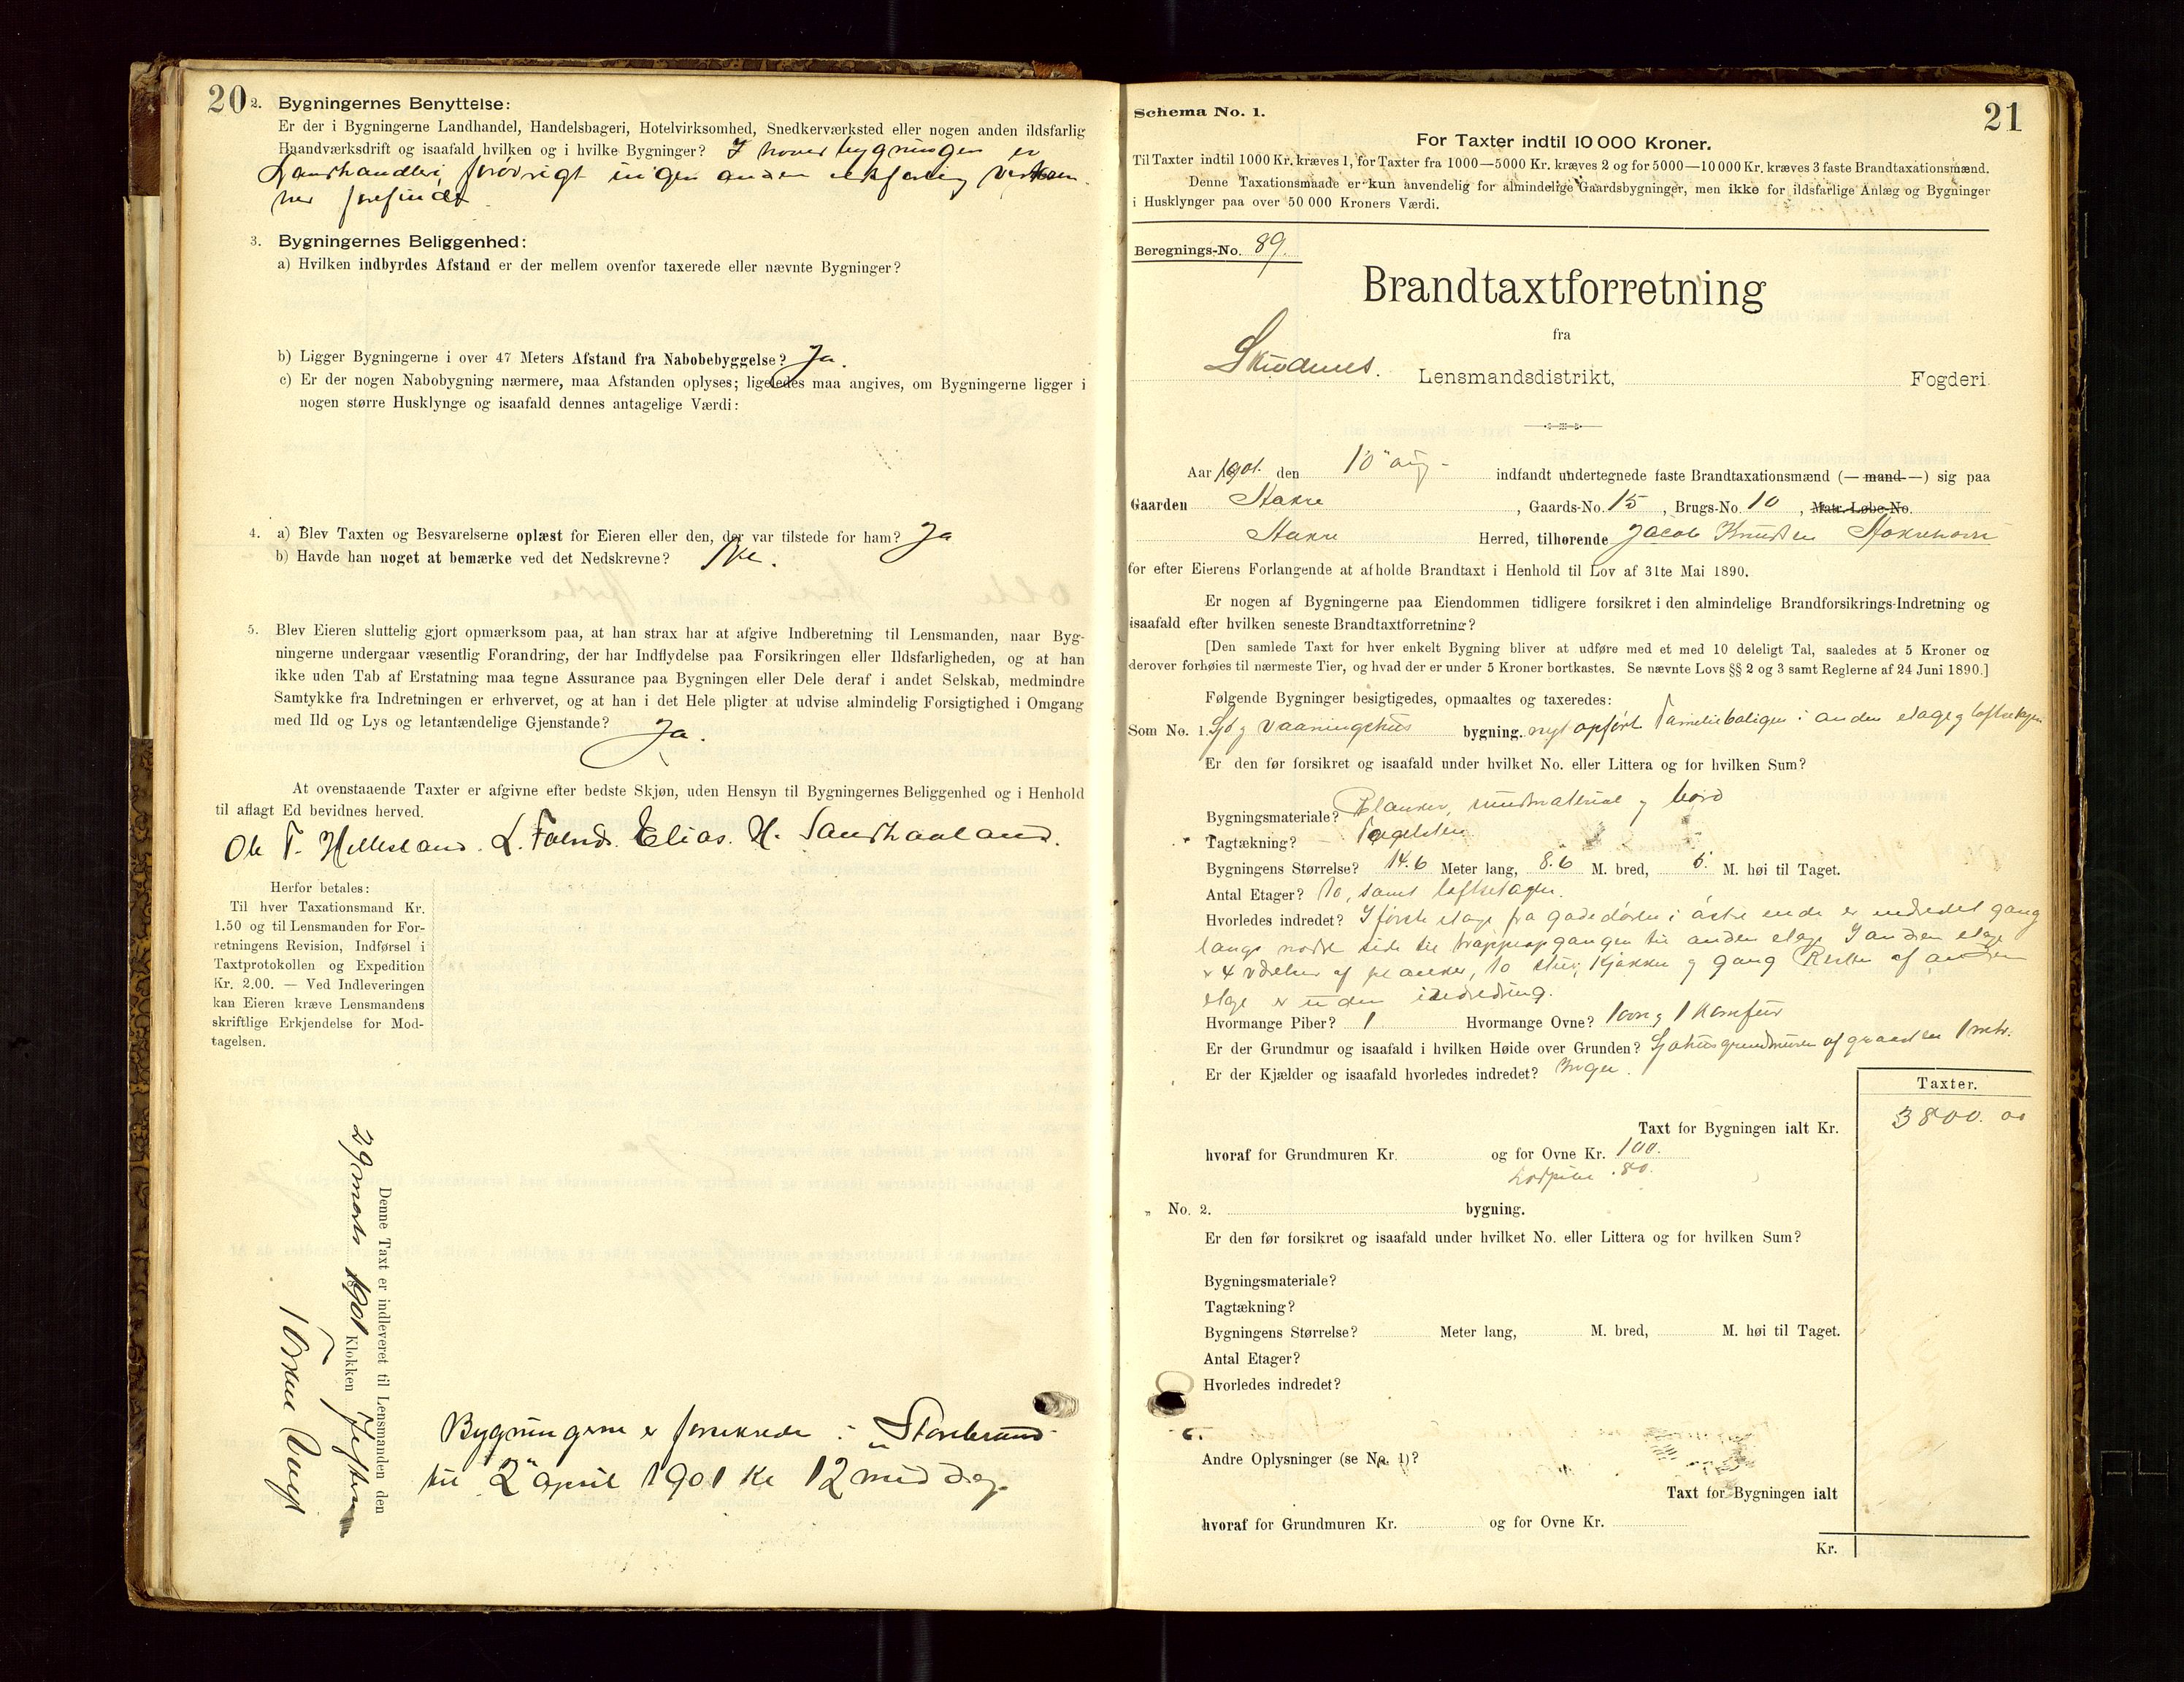 20
2. Bygningernes Benyttelse:
Er der i Bygningerne Landhandel, Handelsbageri, Hotelvirksomhed, Snedkerværksted eller nogen anden ildsfarlig
Haandværksdrift og isaafald hvilken og i hvilke Bygninger? I hovedbygningen er
Landhandleri, forøvrigt ingen anden ildsfarlig
her forefindes
3. Bygningernes Beliggenhed:
a) Hvilken indbyrdes Afstand er der mellem ovenfor taxerede eller nævnte Bygninger?
b) Ligger Bygningerne i over 47 Meters Afstand fra Nabobebyggelse? Ja.
c) Er der nogen Nabobygning nærmere, maa Afstanden oplyses; ligeledes maa angives, om Bygningerne ligger i
nogen større Husklynge og isaafald dennes antagelige Værdi:
4. a) Blev Taxten og Besvarelserne oplæst for Eieren eller den, der var tilstede for ham? Ja
b) Havde han noget at bemærke ved det Nedskrevne?
5. Blev Eieren sluttelig gjort opmærksom paa, at han strax har at afgive Indberetning til Lensmanden, naar Byg-
ningerne undergaar væsentlig Forandring, der har Indflydelse paa Forsikringen eller Ildsfarligheden, og at han
ikke uden Tab af Erstatning maa tegne Assurance paa Bygningen eller Dele deraf i andet Selskab, medmindre
Samtykke fra Indretningen er erhvervet, og at han i det Hele pligter at udvise almindelig Forsigtighed i Omgang
med Ild og Lys og letantændelige Gjenstande? Ja.
At ovenstaaende Taxter er afgivne efter bedste Skjøn, uden Hensyn til Bygningernes Beliggenhed og i Henhold
til aflagt Ed bevidnes herved.
Ole T. Hillesland. L. Falnes. Elias. H. Sandhaaland.
Herfor betales:
Til hver Taxationsmand Kr.
1.50 og til Lensmanden for For-
retningens Revision, Indførsel i
Taxtprotokollen og Expedition
Kr. 2.00. — Ved Indleveringen
kan Eieren kræve Lensmandens
skriftlige Erkjendelse for Mod-
tagelsen.
Denne Taxt er indleveret til Lensmanden den
29 marts 1901 Klokken
Bygningerne er forsikrede i Storebrand
til 2" april 1901 Kl 12 middag
21
Schema No. 1.
For Taxter indtil 10 000 Kroner.
Til Taxter indtil 1000 Kr. kræves 1, for Taxter fra 1000—5000 Kr. kræves 2 og for 5000—10 000 Kr. kræves 3 faste Brandtaxationsmænd.
Denne Taxationsmaade er kun anvendelig for almindelige Gaardsbygninger, men ikke for ildsfarlige Anlæg og Bygninger
i Husklynger paa over 50 000 Kroners Værdi.
Beregnings-No. 89.
Brandtaxtforretning
fra
Skudenes. Lensmandsdistrikt, Fogderi
Aar 1901. den 10" aug- indfandt undertegnede faste Brandtaxationsmænd (—mand—) sig paa
Gaarden Aakre, Gaards-No. 15, Brugs-No. 10, Matr.-Løbe-No.
Aakre Herred, tilhørende Jacob Knudsen Aakrehavn
for efter Eierens Forlangende at afholde Brandtaxt i Henhold til Lov af 31te Mai 1890.
Er nogen af Bygningerne paa Eiendommen tidligere forsikret i den almindelige Brandforsikrings-Indretning og
isaafald efter hvilken seneste Brandtaxtforretning?
[Den samlede Taxt for hver enkelt Bygning bliver at udføre med et med 10 deleligt Tal, saaledes at 5 Kroner og
derover forhøies til nærmeste Tier, og hvad der er under 5 Kroner bortkastes. Se nævnte Lovs §§ 2 og 3 samt Reglerne af 24 Juni 1890.]
Følgende Bygninger besigtigedes, opmaaltes og taxeredes:
Som No. 1. Sjø og vaaningshus bygning. nyt opført Familiebolig i anden etage og
Er den før forsikret og isaafald under hvilket No. eller Littera og for hvilken Sum?
Bygningsmateriale? Planker, og bord
Tagtækning? Tagelsten
Bygningens Størrelse? 14.6 Meter lang, 8.6 M. bred, 5. M. høi til Taget.
Antal Etager? To, samt loftsetage.
Hvorledes indredet? I første etage fra gadedøren i østre ende er indredet gang
langs nodre side til trappeopgangen til anden etage I anden etage
er 4 værelser af planker, to stuer, kjøkken og gang Resten af anden
etage er uden indredning.
Hvormange Piber? 1 Hvormange Ovne? 1 ovn og 1 komfur
Er der Grundmur og isaafald i hvilken Høide over Grunden? Sjøhusgrundmuren af graasten 1 metr.
Er der Kjælder og isaafald hvorledes indredet? Ingen.
Taxter.
Taxt for Bygningen ialt Kr. 3800.00
hvoraf for Grundmuren Kr. og for Ovne Kr. 100.
80.
" No. 2. bygning.
Er den før forsikret og isaafald under hvilket No. eller Littera og for hvilken Sum?
Bygningsmateriale?
Tagtækning?
Bygningens Størrelse? Meter lang, M. bred, M. høi til Taget.
Antal Etager?
Hvorledes indredet?
Andre Oplysninger (se No. 1)?
Taxt for Bygningen ialt
hvoraf for Grundmuren Kr. og for Ovne Kr.
Kr.